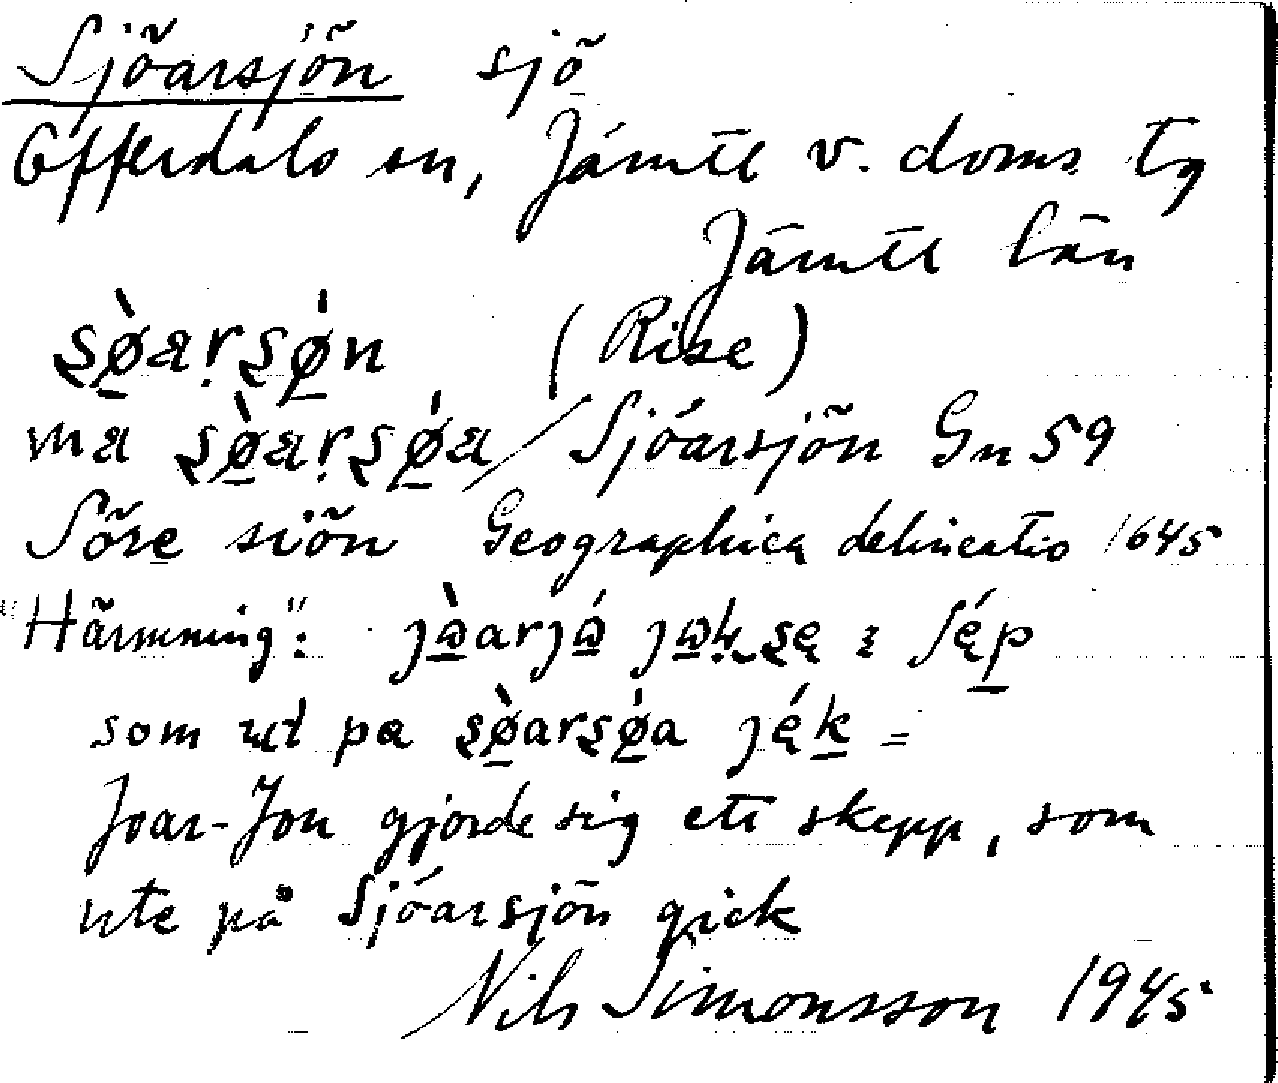 Sjöarsjön sjö
Offerdals sn, Jämtl v. doms tg
Jämtl län
(Rise)
ma Sjöarsjön Gn 59
Söre siön Geographica delineatio 1645
"Härmning":
som ut pa
Joar-Jon gjorde sig ett skepp, som
ute på Sjöarsjön gick
Nils Simonsson 1945